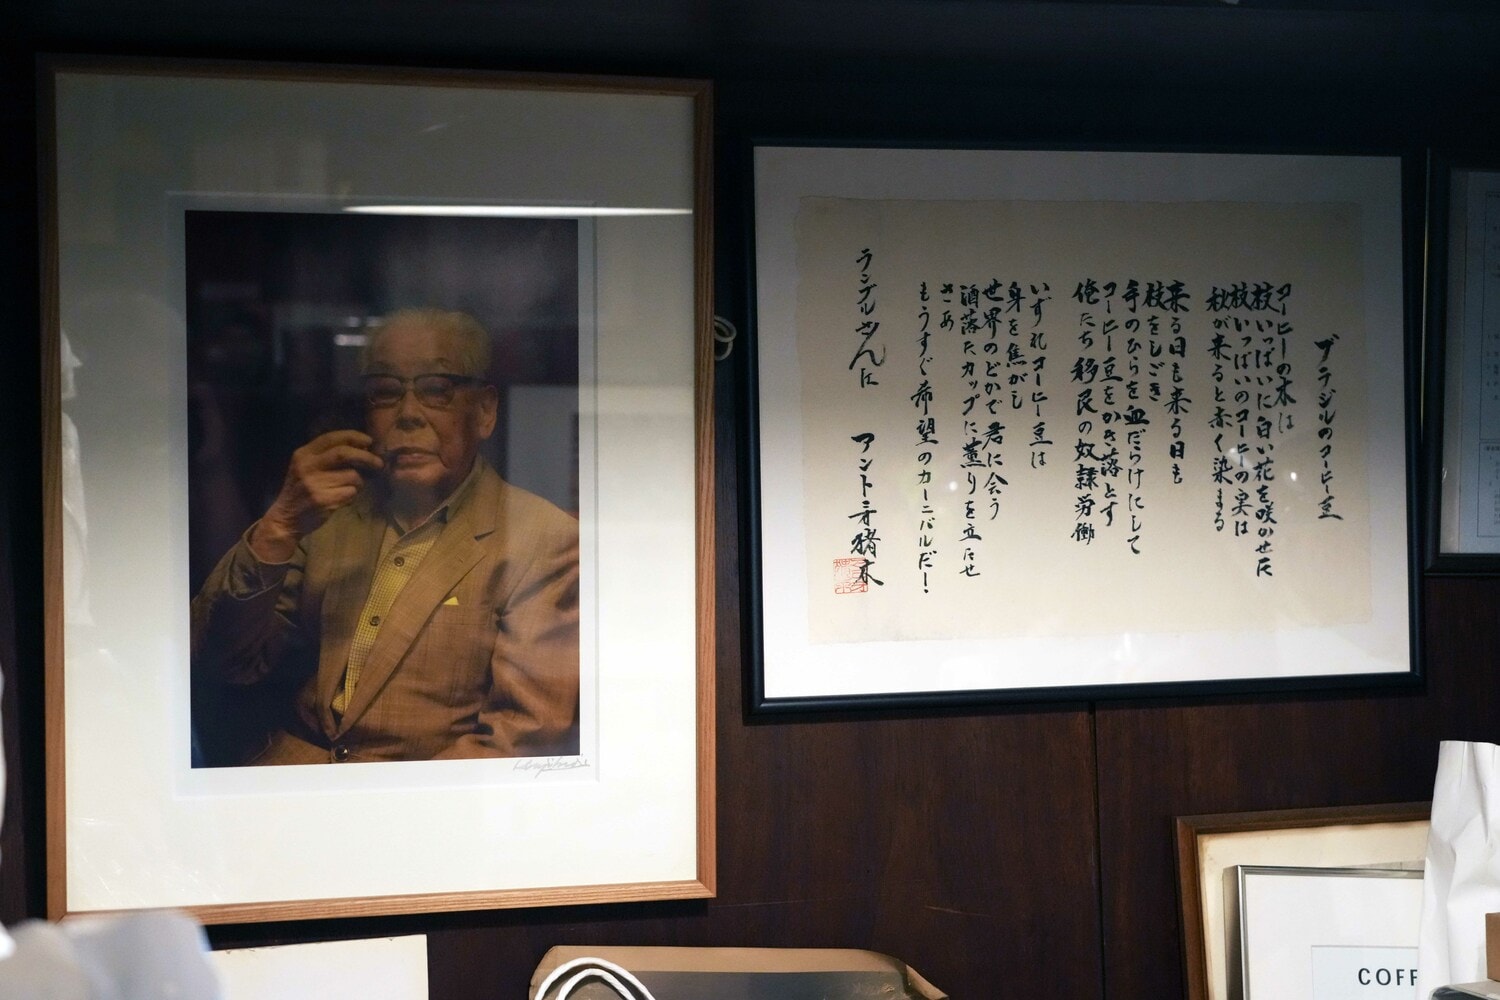 ブラジルのコーヒー豆
コーヒーの木は
枝いっぱいに白い花を咲かせた
枝いっぱいのコーヒーの実は
秋が来ると赤く染まる
来る日も来る日も
枝をしごき
手のひらを血だらけにして
コーヒー豆をかき落とす
俺たち移民の奴隷労働
いずれコーヒー豆は
身を焦がし
世界のどこかで君に会う
洒落たカップに薫りを立たせ
さあ
もうすぐ希望のカーニバルだ!
ランブルさんに アントニオ猪木
COFF